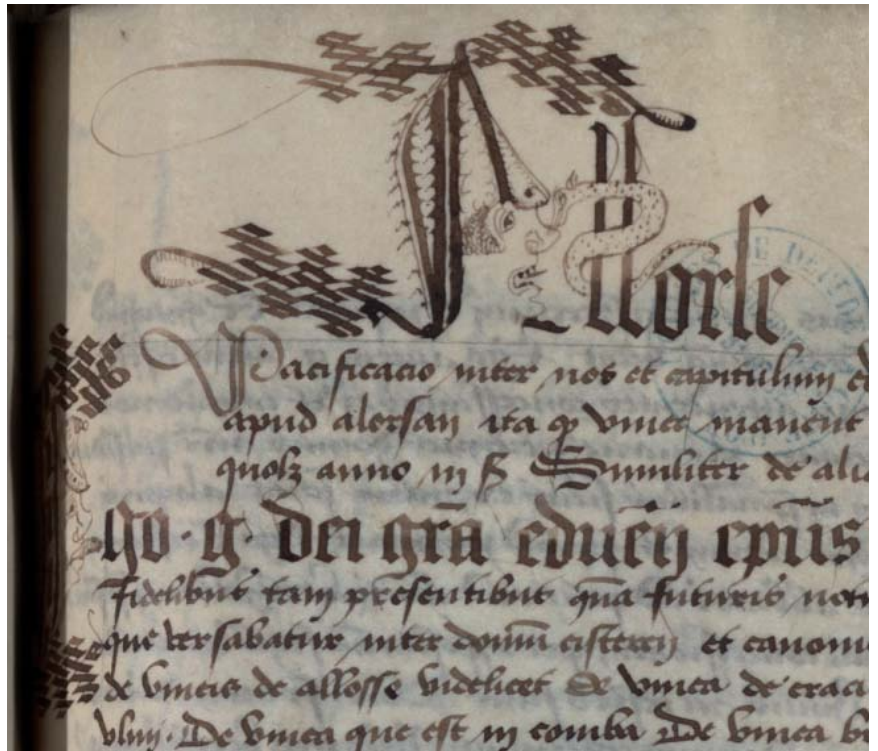 Allorse
Pacificacio inter nos et capitulum ed
apud alorsan ita qꝫ vinee manent
quolꝫ anno in ß Similiter de alia
go · g · dei gr̄a eduēn ep̄us
Fidelibus tam presentibus qua futuris not
que versabatur inter domū cistercii et canoni
de vineis de allosse videlicet de vinea de craci
De vinea que est in comba De vinea